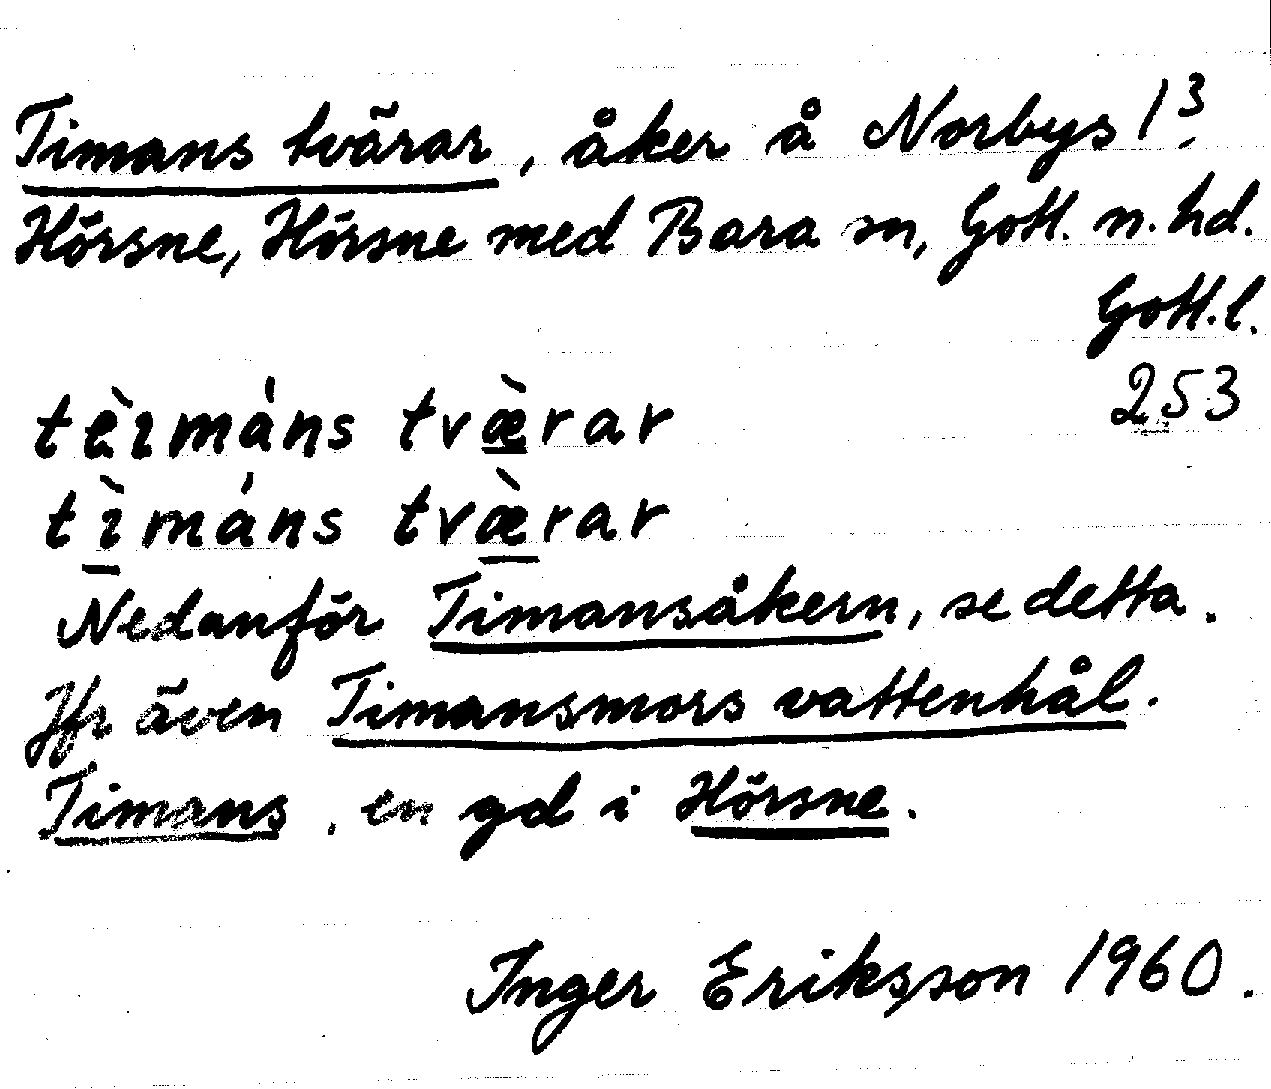 Timans tvärar, åker å Norbys 1³,
Hörsne, Hörsne med Bara sn, Gotl. n. hd.
Gotl. l.
253
tèımáns tvæ̀rar
tı̀máns tvæ̀rar
Nedanför Timansåkern, se detta.
Jfr även Timansmors vattenhål.
Timans, en gd i Hörsne.
Inger Eriksson 1960.